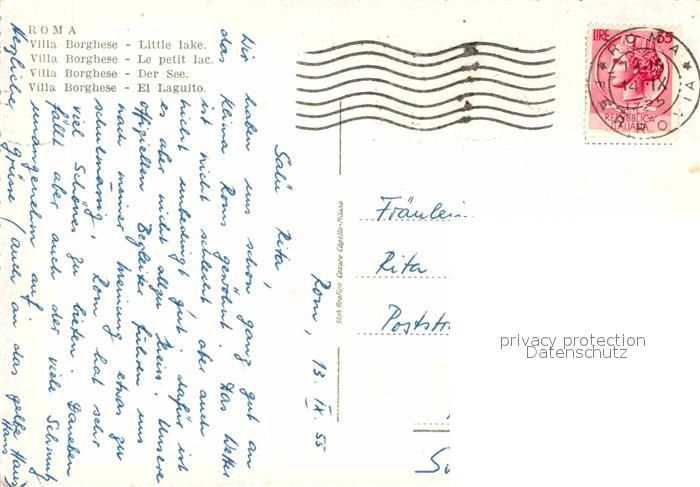 ROMA
Villa Borghese - Little lake.
Villa Borghese - Le petit lac.
Villa Borghese - Der See.
Villa Borghese - El Laguito.
Rom, 13. IX. 55
Salü Rita,
Wir haben uns schon ganz gut an
das Klima Roms gewöhnt. Das Wetter
ist nicht schlecht aber auch
nicht unbedingt gut, dafür ist
es aber nicht allzu heiss. Unsere
offiziellen Begleiter führen uns
nach meiner Meinung etwas zu
schulmässig. Rom hat sehr
viel Schönes zu bieten. Daneben
fällt aber auch der viele Schmutz
unangenehm auf.
Herzliche Grüsse (auch an das gelbe Haus)
Hans
Stab Grafico Cesare Capello-Milano
LIRE 35
REPUBBLICA
ITALIANA
ROMA
FERROVIA
14.IX
Fräulein
Rita
Poststr
privacy protection
Datenschutz